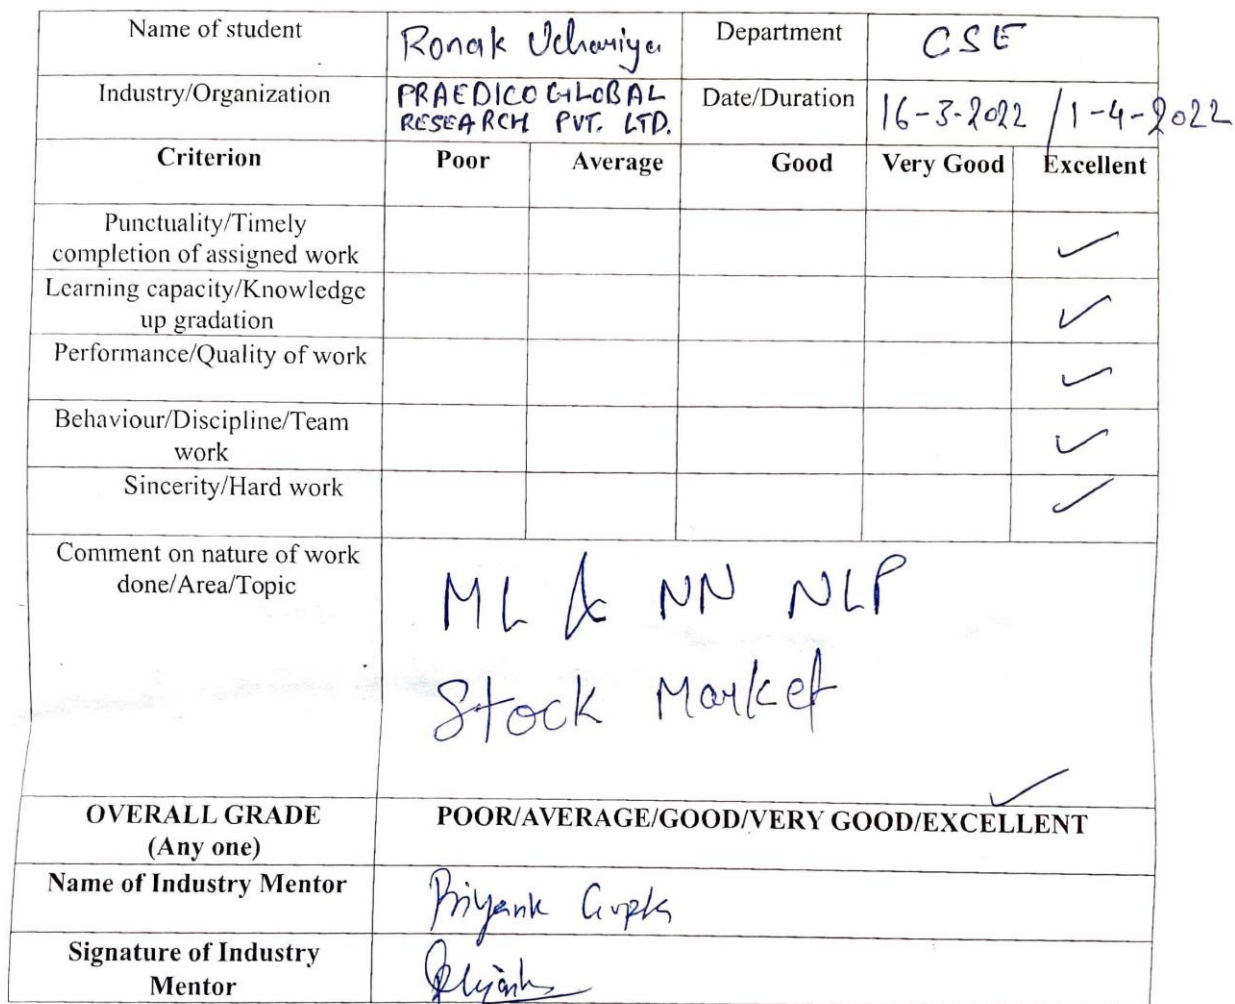 Name of student Ronak Uchariya Department CSE
Industry/Organization PRAEDICO GLOBAL Date/Duration 16-3-2022 / 1-4-2022
RESEARCH PVT. LTD.
Criterion Poor Average Good Very Good Excellent
Punctuality/Timely
completion of assigned work ✓
Learning capacity/Knowledge
up gradation ✓
Performance/Quality of work ✓
Behaviour/Discipline/Team
work ✓
Sincerity/Hard work ✓
Comment on nature of work
done/Area/Topic
ML & NN NLP
Stock Market
✓
OVERALL GRADE POOR/AVERAGE/GOOD/VERY GOOD/EXCELLENT
(Any one)
Name of Industry Mentor Priyank Gupta
Signature of Industry
Mentor